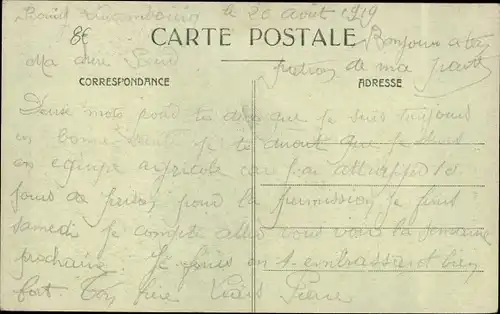 le 20 août 1919
8€
CARTE POSTALE
Ma chère
Bonjour
de ma part
CORRESPONDANCE
ADRESSE
Deux mots pour te dire que je suis toujours
en bonne santé je te dirait que je suis
en equipe agricole car j'ai attrapper 10
jours de prison pour la permission je finis
samedi je compte aller vous voir la semaine
prochaine. Je finis en t'embrassant bien
fort. Ton frère Pierre